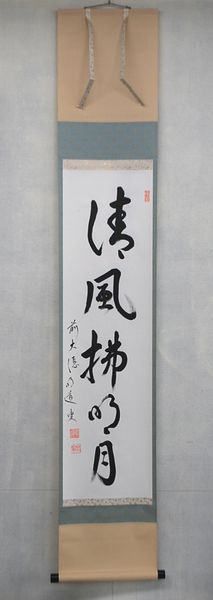 清風拂明月
前大徳